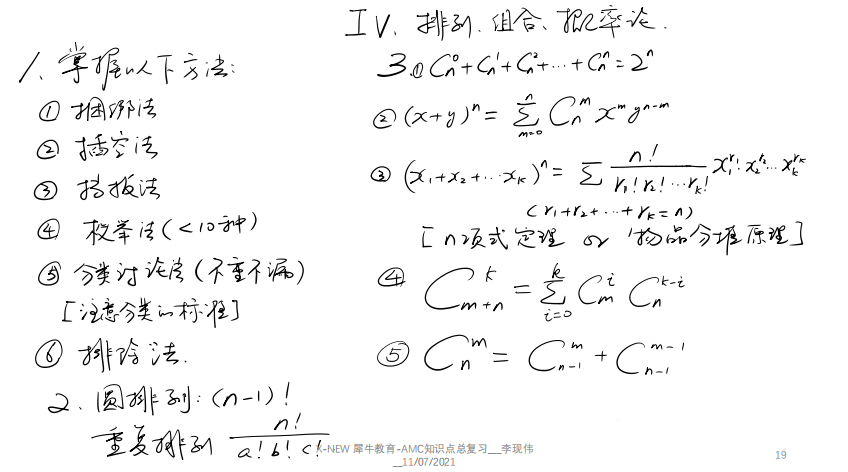 IV、排列、组合、概率论.
1、掌握以下方法:
① 捆绑法
② 插空法
③ 挡板法
④ 枚举法(<10种)
⑤ 分类讨论法(不重不漏)
[注意分类的标准]
⑥ 排除法.
2、圆排列:(n-1)!
重复排列 n!/(a!b!c!)
3.① C_n^0+C_n^1+C_n^2+…+C_n^n=2^n
② (x+y)^n = ∑_{m=0}^{n} C_n^m x^m y^{n-m}
③ (x_1+x_2+…x_k)^n = ∑ n!/(r_1!r_2!…r_k!) x_1^{r_1}·x_2^{r_2}…x_k^{r_k}
(r_1+r_2+…+r_k=n)
[n项式定理 or 物品分堆原理]
④ C_{m+n}^k = ∑_{i=0}^{k} C_m^i C_n^{k-i}
⑤ C_n^m = C_{n-1}^m + C_{n-1}^{m-1}
X-NEW 犀牛教育-AMC知识点总复习__李现伟
__11/07/2021
19